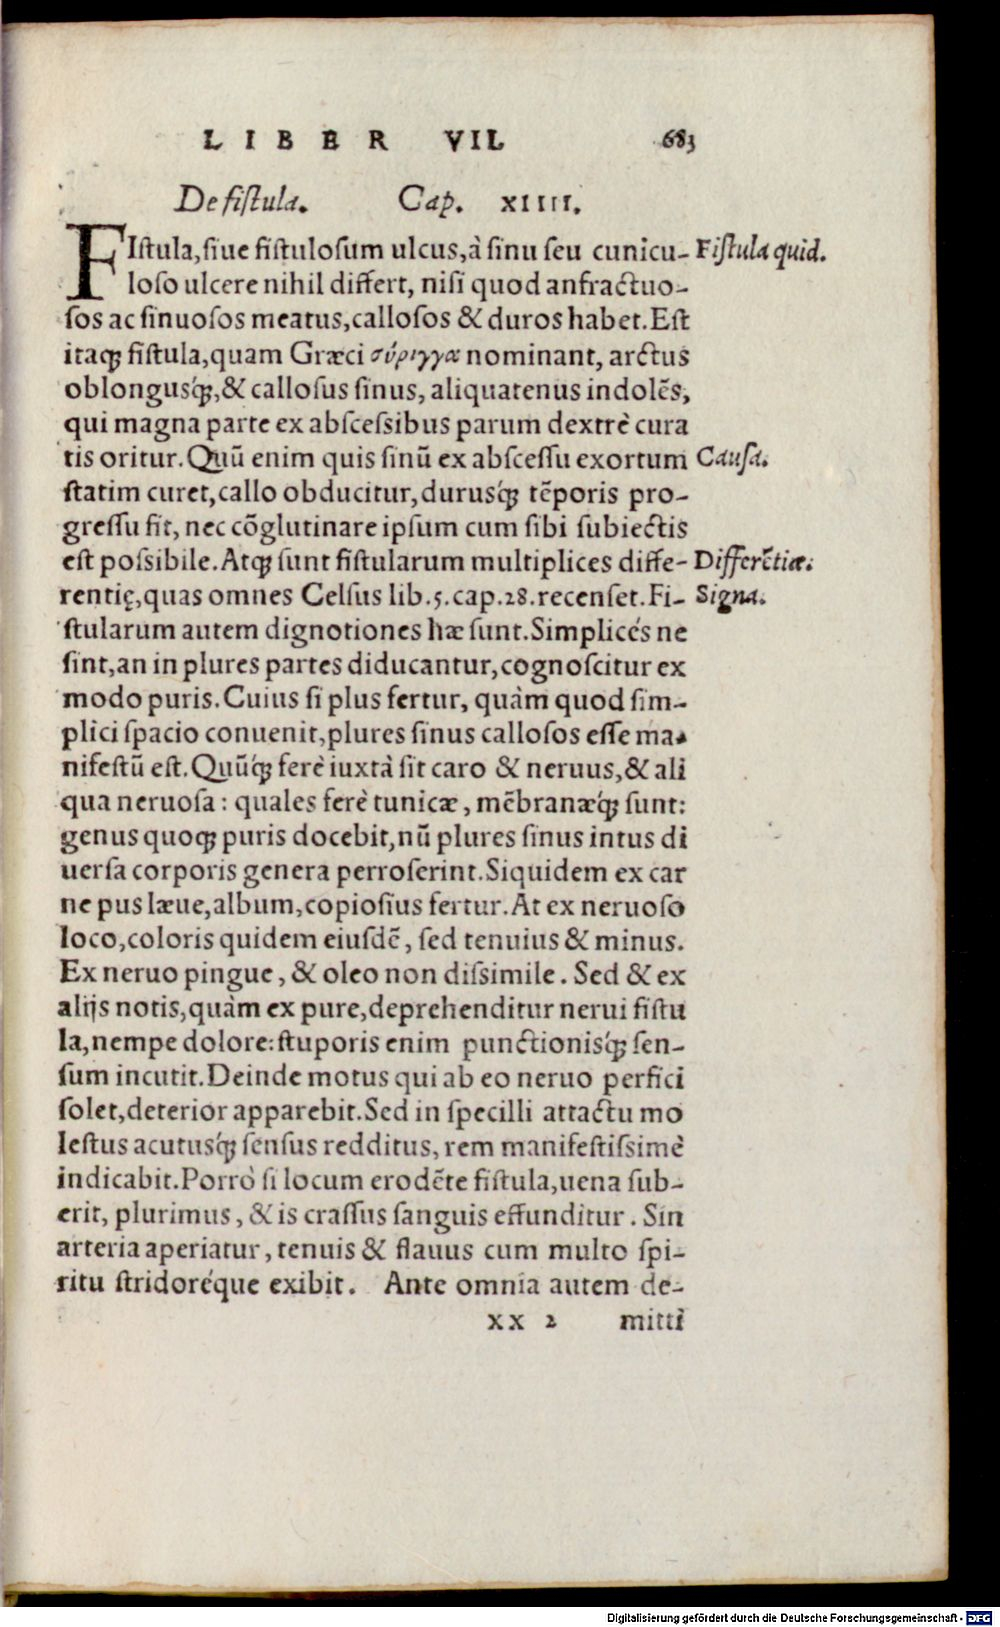 LIBER VII. 683
De fistula. Cap. XIIII.
FIstula, siue fistulosum ulcus, à sinu seu cunicu- Fistula quid.
loso ulcere nihil differt, nisi quod anfractuo-
sos ac sinuosos meatus, callosos & duros habet. Est
itaq́; fistula, quam Græci σύριγγα nominant, arctus
oblongusq́;, & callosus sinus, aliquatenus indolẽs,
qui magna parte ex abscessibus parum dextrè cura
tis oritur. Quũ enim quis sinũ ex abscessu exortum Causa.
statim curet, callo obducitur, durusq́; tẽporis pro-
gressu fit, nec cõglutinare ipsum cum sibi subiectis
est possibile. Atq; sunt fistularum multiplices diffe- Differẽtiæ.
rentię, quas omnes Celsus lib. 5. cap. 28. recenset. Fi- Signa.
stularum autem dignotiones hæ sunt. Simplicés ne
sint, an in plures partes diducantur, cognoscitur ex
modo puris. Cuius si plus fertur, quàm quod sim-
plici spacio conuenit, plures sinus callosos esse ma-
nifestũ est. Quũq́; ferè iuxtà sit caro & neruus, & ali
qua neruosa: quales ferè tunicæ, mẽbranæq́; sunt:
genus quoq; puris docebit, nũ plures sinus intus di
uersa corporis genera perroserint. Siquidem ex car
ne pus læue, album, copiosius fertur. At ex neruoso
loco, coloris quidem eiusdẽ, sed tenuius & minus.
Ex neruo pingue, & oleo non dissimile. Sed & ex
alijs notis, quàm ex pure, deprehenditur nerui fistu
la, nempe dolore: stuporis enim punctionisq́; sen-
sum incutit. Deinde motus qui ab eo neruo perfici
solet, deterior apparebit. Sed in specilli attactu mo
lestus acutusq́; sensus redditus, rem manifestissimè
indicabit. Porrò si locum erodẽte fistula, uena sub-
erit, plurimus, & is crassus sanguis effunditur. Sin
arteria aperiatur, tenuis & flauus cum multo spi-
ritu stridoréque exibit. Ante omnia autem de-
xx 2 mitti
Digitalisierung gefördert durch die Deutsche Forschungsgemeinschaft - DFG